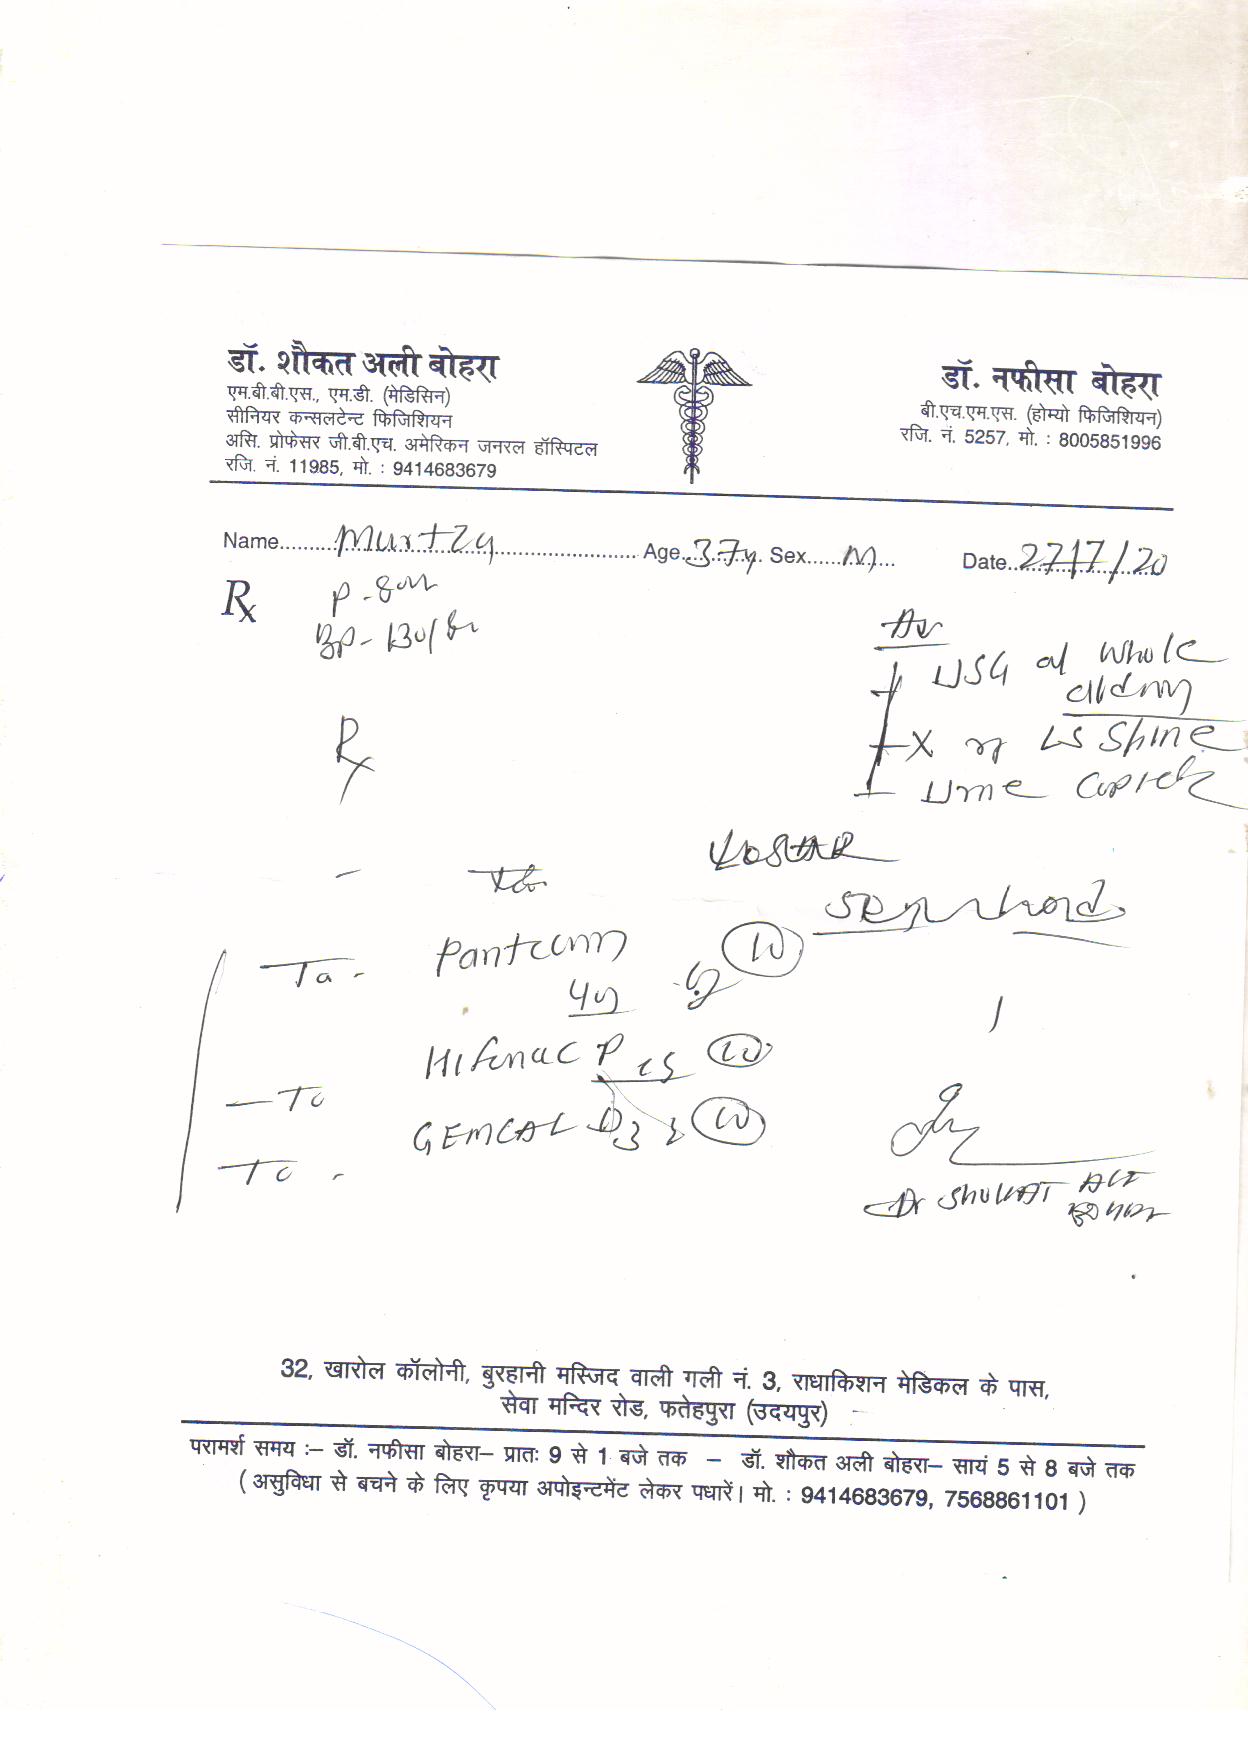 डॉ. शौकत अली बोहरा
एम.बी.बी.एस., एम.डी. (मेडिसिन)
सीनियर कन्सलटेन्ट फिजिशियन
असि. प्रोफेसर जी.बी.एच. अमेरिकन जनरल हॉस्पिटल
रजि. नं. 11985, मो. : 9414683679
डॉ. नफीसा बोहरा
बी.एच.एम.एस. (होम्यो फिजिशियन)
रजि. नं. 5257, मो. : 8005851996
Name Murtzy Age 37y Sex M Date 27/7/20
Rx
P -
BP - 130/
USG of Whole
X LS Spine
Urine
Rx
Ta -
40
HIfenac P
GEMCAL D3
Dr SHUKAT ALI
32, खारोल कॉलोनी, बुरहानी मस्जिद वाली गली नं. 3, राधाकिशन मेडिकल के पास,
सेवा मन्दिर रोड, फतेहपुरा (उदयपुर)
परामर्श समय :– डॉ. नफीसा बोहरा– प्रातः 9 से 1 बजे तक – डॉ. शौकत अली बोहरा– सायं 5 से 8 बजे तक
( असुविधा से बचने के लिए कृपया अपोइन्टमेंट लेकर पधारें। मो. : 9414683679, 7568861101 )